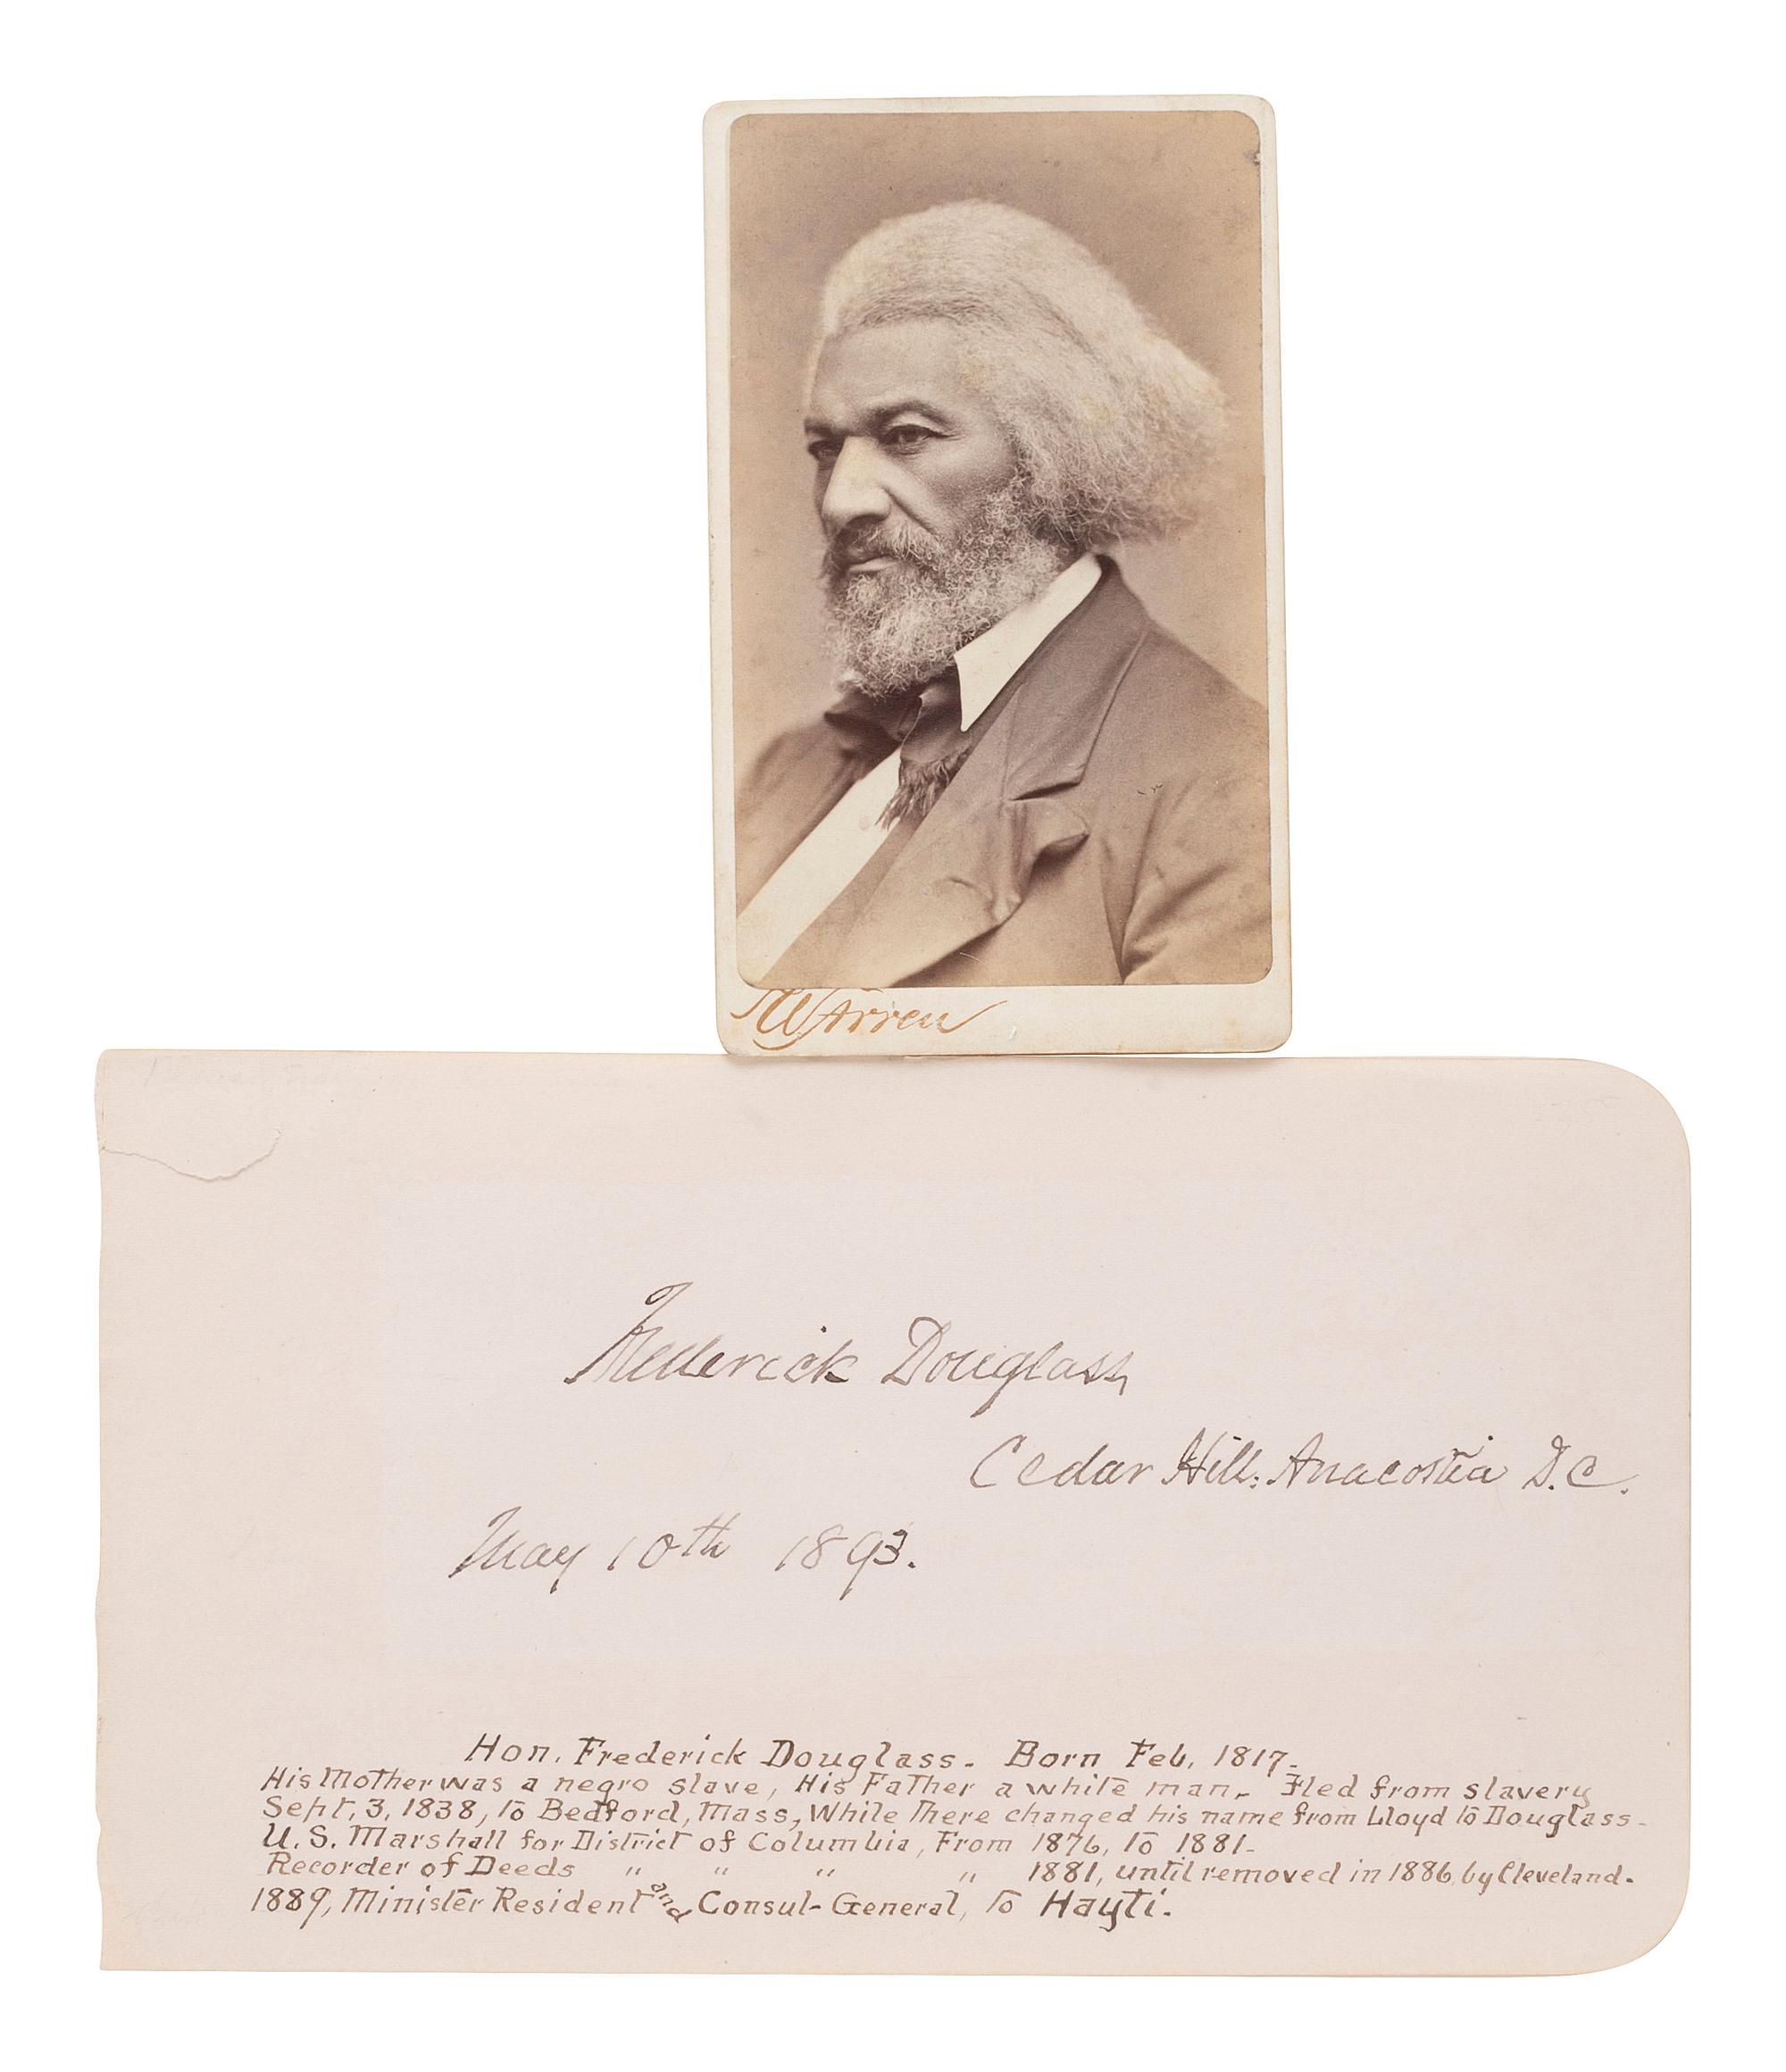 Warren
Frederick Douglass,
Cedar Hill. Anacostia D.C.
May 10th 1893.
Hon. Frederick Douglass. Born Feb, 1817.
His Mother was a negro slave, His Father a white man. Fled from slavery
Sept, 3, 1838, to Bedford, Mass, While there changed his name from Lloyd to Douglass.
U.S. Marshall for District of Columbia, From 1876, to 1881.
Recorder of Deeds " " " " 1881, until removed in 1886, by Cleveland.
1889, Minister Resident and Consul-General, to Hayti.